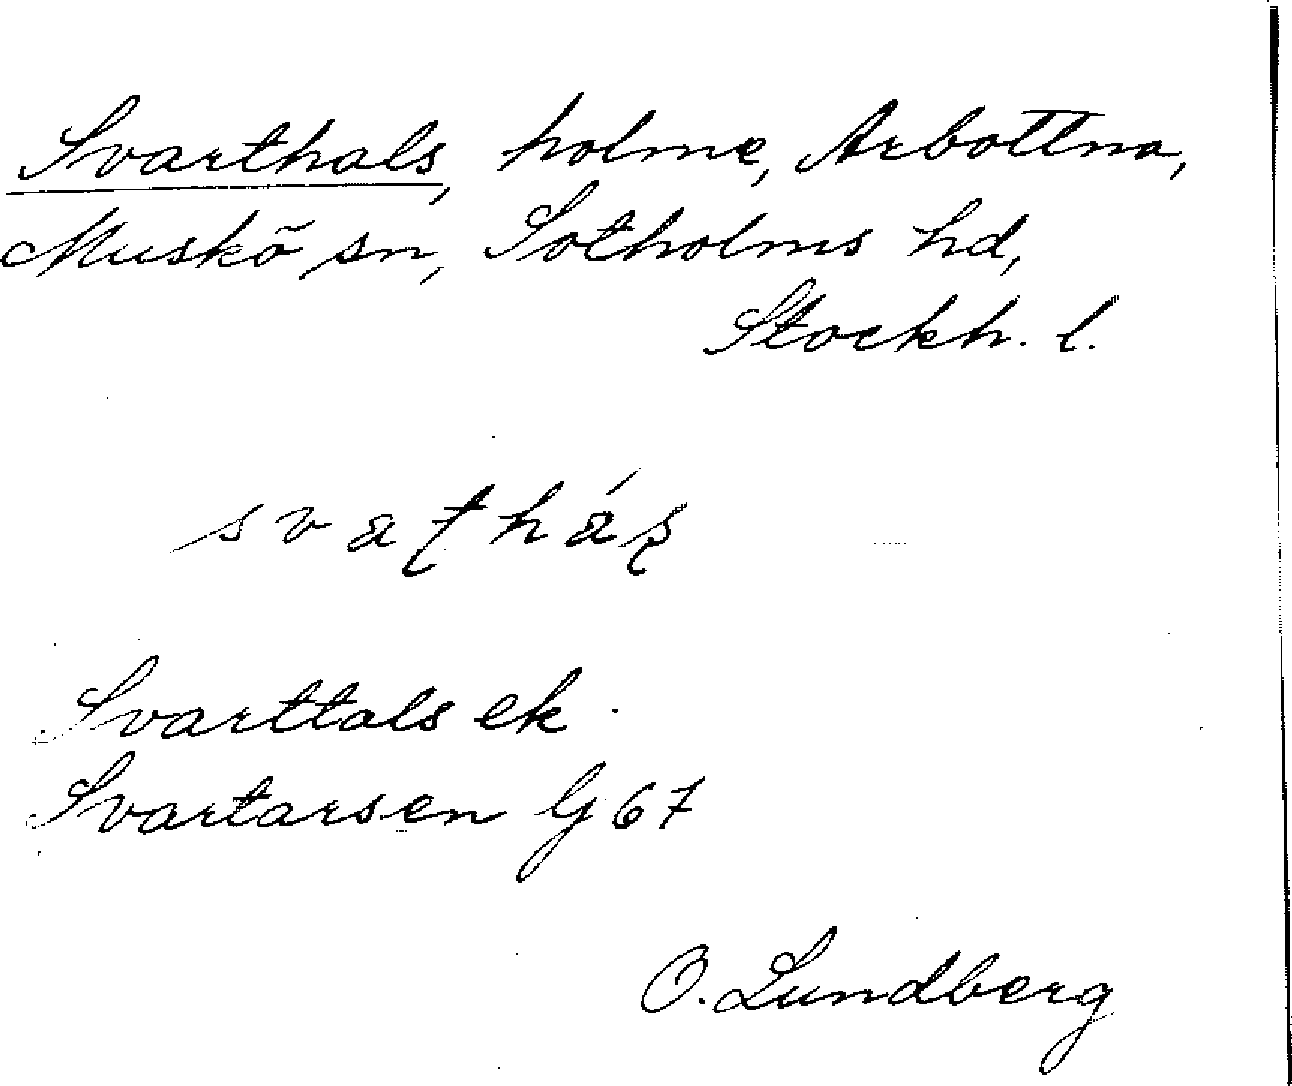 Svarthals, holme, Arbottna,
Muskö sn, Sotholms hd,
Stockh. l.
svaʈháʂ
Svarttals ek
Svartarsen Gj 67
O. Lundberg